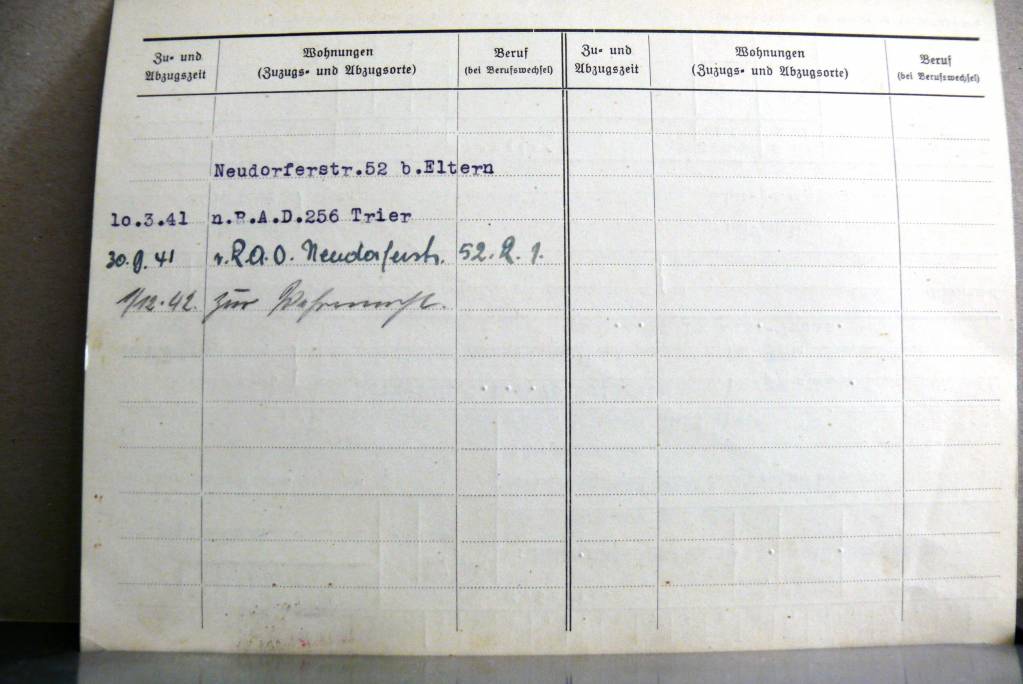 Zu- und Abzugszeit
Wohnungen
(Zuzugs- und Abzugsorte)
Beruf
(bei Berufswechsel)
Zu- und Abzugszeit
Wohnungen
(Zuzugs- und Abzugsorte)
Beruf
(bei Berufswechsel)
Neudorferstr.52 b.Eltern
1o.3.41 n.R.A.D.256 Trier
30.9.41 v.R.A.D. Neudorferstr. 52.
1/12.42. zur Wehrmacht.